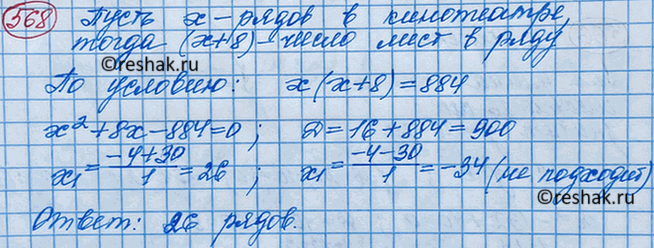 568 Пусть x - рядов в кинотеатре,
тогда (x+8) - число мест в ряду
©reshak.ru
По условию: x(x+8)=884
x²+8x-884=0; D=16+884=900
x₁ = (-4+30)/1 = 26; x₁ = (-4-30)/1 = -34 (не подходит)
Ответ: 26 рядов.
©reshak.ru